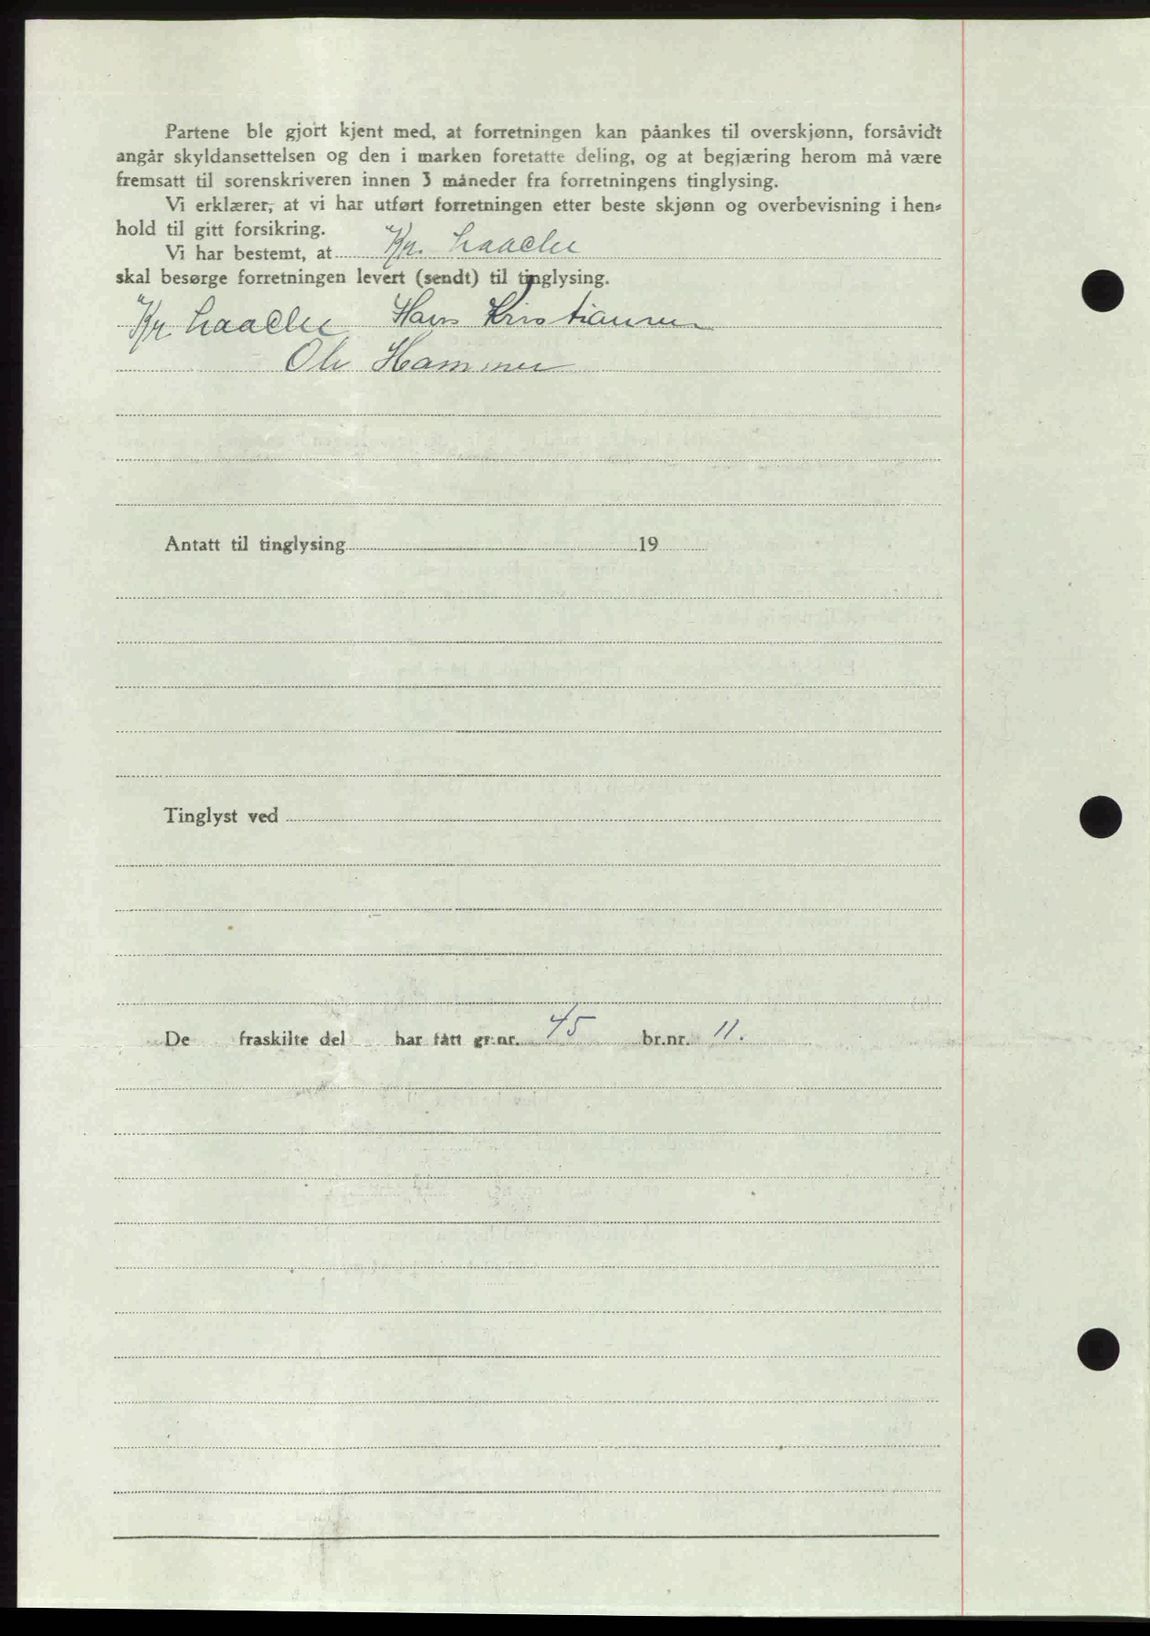 Partene ble gjort kjent med, at forretningen kan påankes til overskjønn, forsåvidt
angår skyldansettelsen og den i marken foretatte deling, og at begjæring herom må være
fremsatt til sorenskriveren innen 3 måneder fra forretningens tinglysing.
Vi erklærer, at vi har utført forretningen etter beste skjønn og overbevisning i hen-
hold til gitt forsikring.
Vi har bestemt, at Kr. Laache
skal besørge forretningen levert (sendt) til tinglysing.
Kr. Laache Hans Kristiansen
Ole Hammer
Antatt til tinglysing 19
Tinglyst ved
De fraskilte del har fått gr.nr. 45 br.nr. 11.